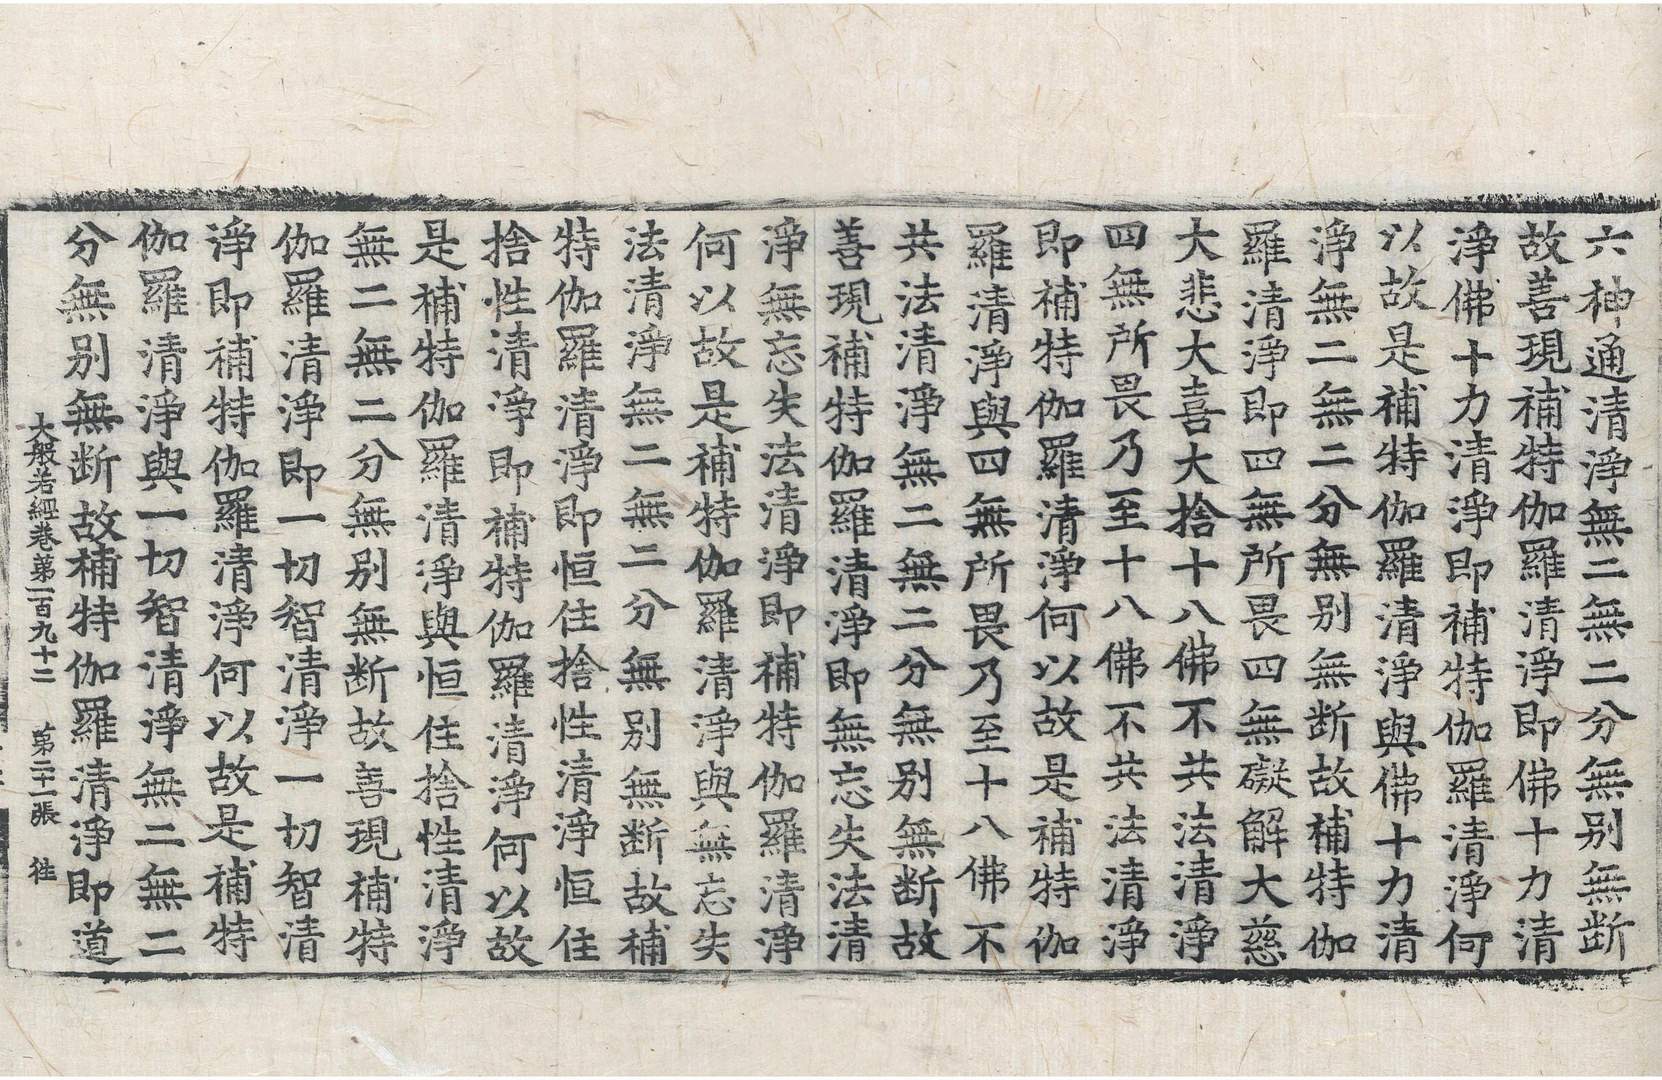 六神通清淨無二無二分無别無断
故善現補特伽羅清淨即佛十力清
淨佛十力清淨即補特伽羅清淨何
以故是補特伽羅清淨與佛十力清
淨無二無二分無别無断故補特伽
羅清淨即四無所畏四無礙解大慈
大悲大喜大捨十八佛不共法清淨
四無所畏乃至十八佛不共法清淨
即補特伽羅清淨何以故是補特伽
羅清淨與四無所畏乃至十八佛不
共法清淨無二無二分無别無断故
善現補特伽羅清淨即無忘失法清
淨無忘失法清淨即補特伽羅清淨
何以故是補特伽羅清淨與無忘失
法清淨無二無二分無别無断故補
特伽羅清淨即恒住捨性清淨恒住
捨性清淨即補特伽羅清淨何以故
是補特伽羅清淨與恒住捨性清淨
無二無二分無别無断故善現補特
伽羅清淨即一切智清淨一切智清
淨即補特伽羅清淨何以故是補特
伽羅清淨與一切智清淨無二無二
分無别無断故補特伽羅清淨即道
大般若經卷第一百九十二 第二十一張 往